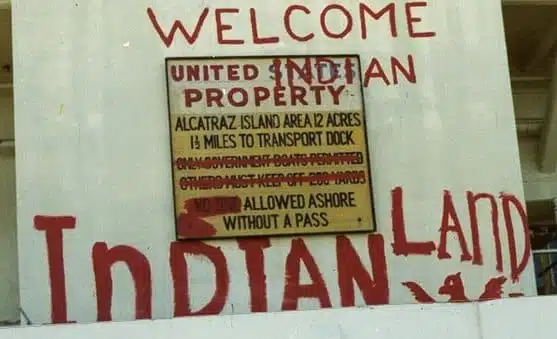 WELCOME
UNITED INDIAN
PROPERTY
ALCATRAZ ISLAND AREA 12 ACRES
1½ MILES TO TRANSPORT DOCK
ONLY GOVERNMENT BOATS PERMITTED
OTHERS MUST KEEP OFF 200 YARDS
NO ONE ALLOWED ASHORE
WITHOUT A PASS
INDIAN LAND